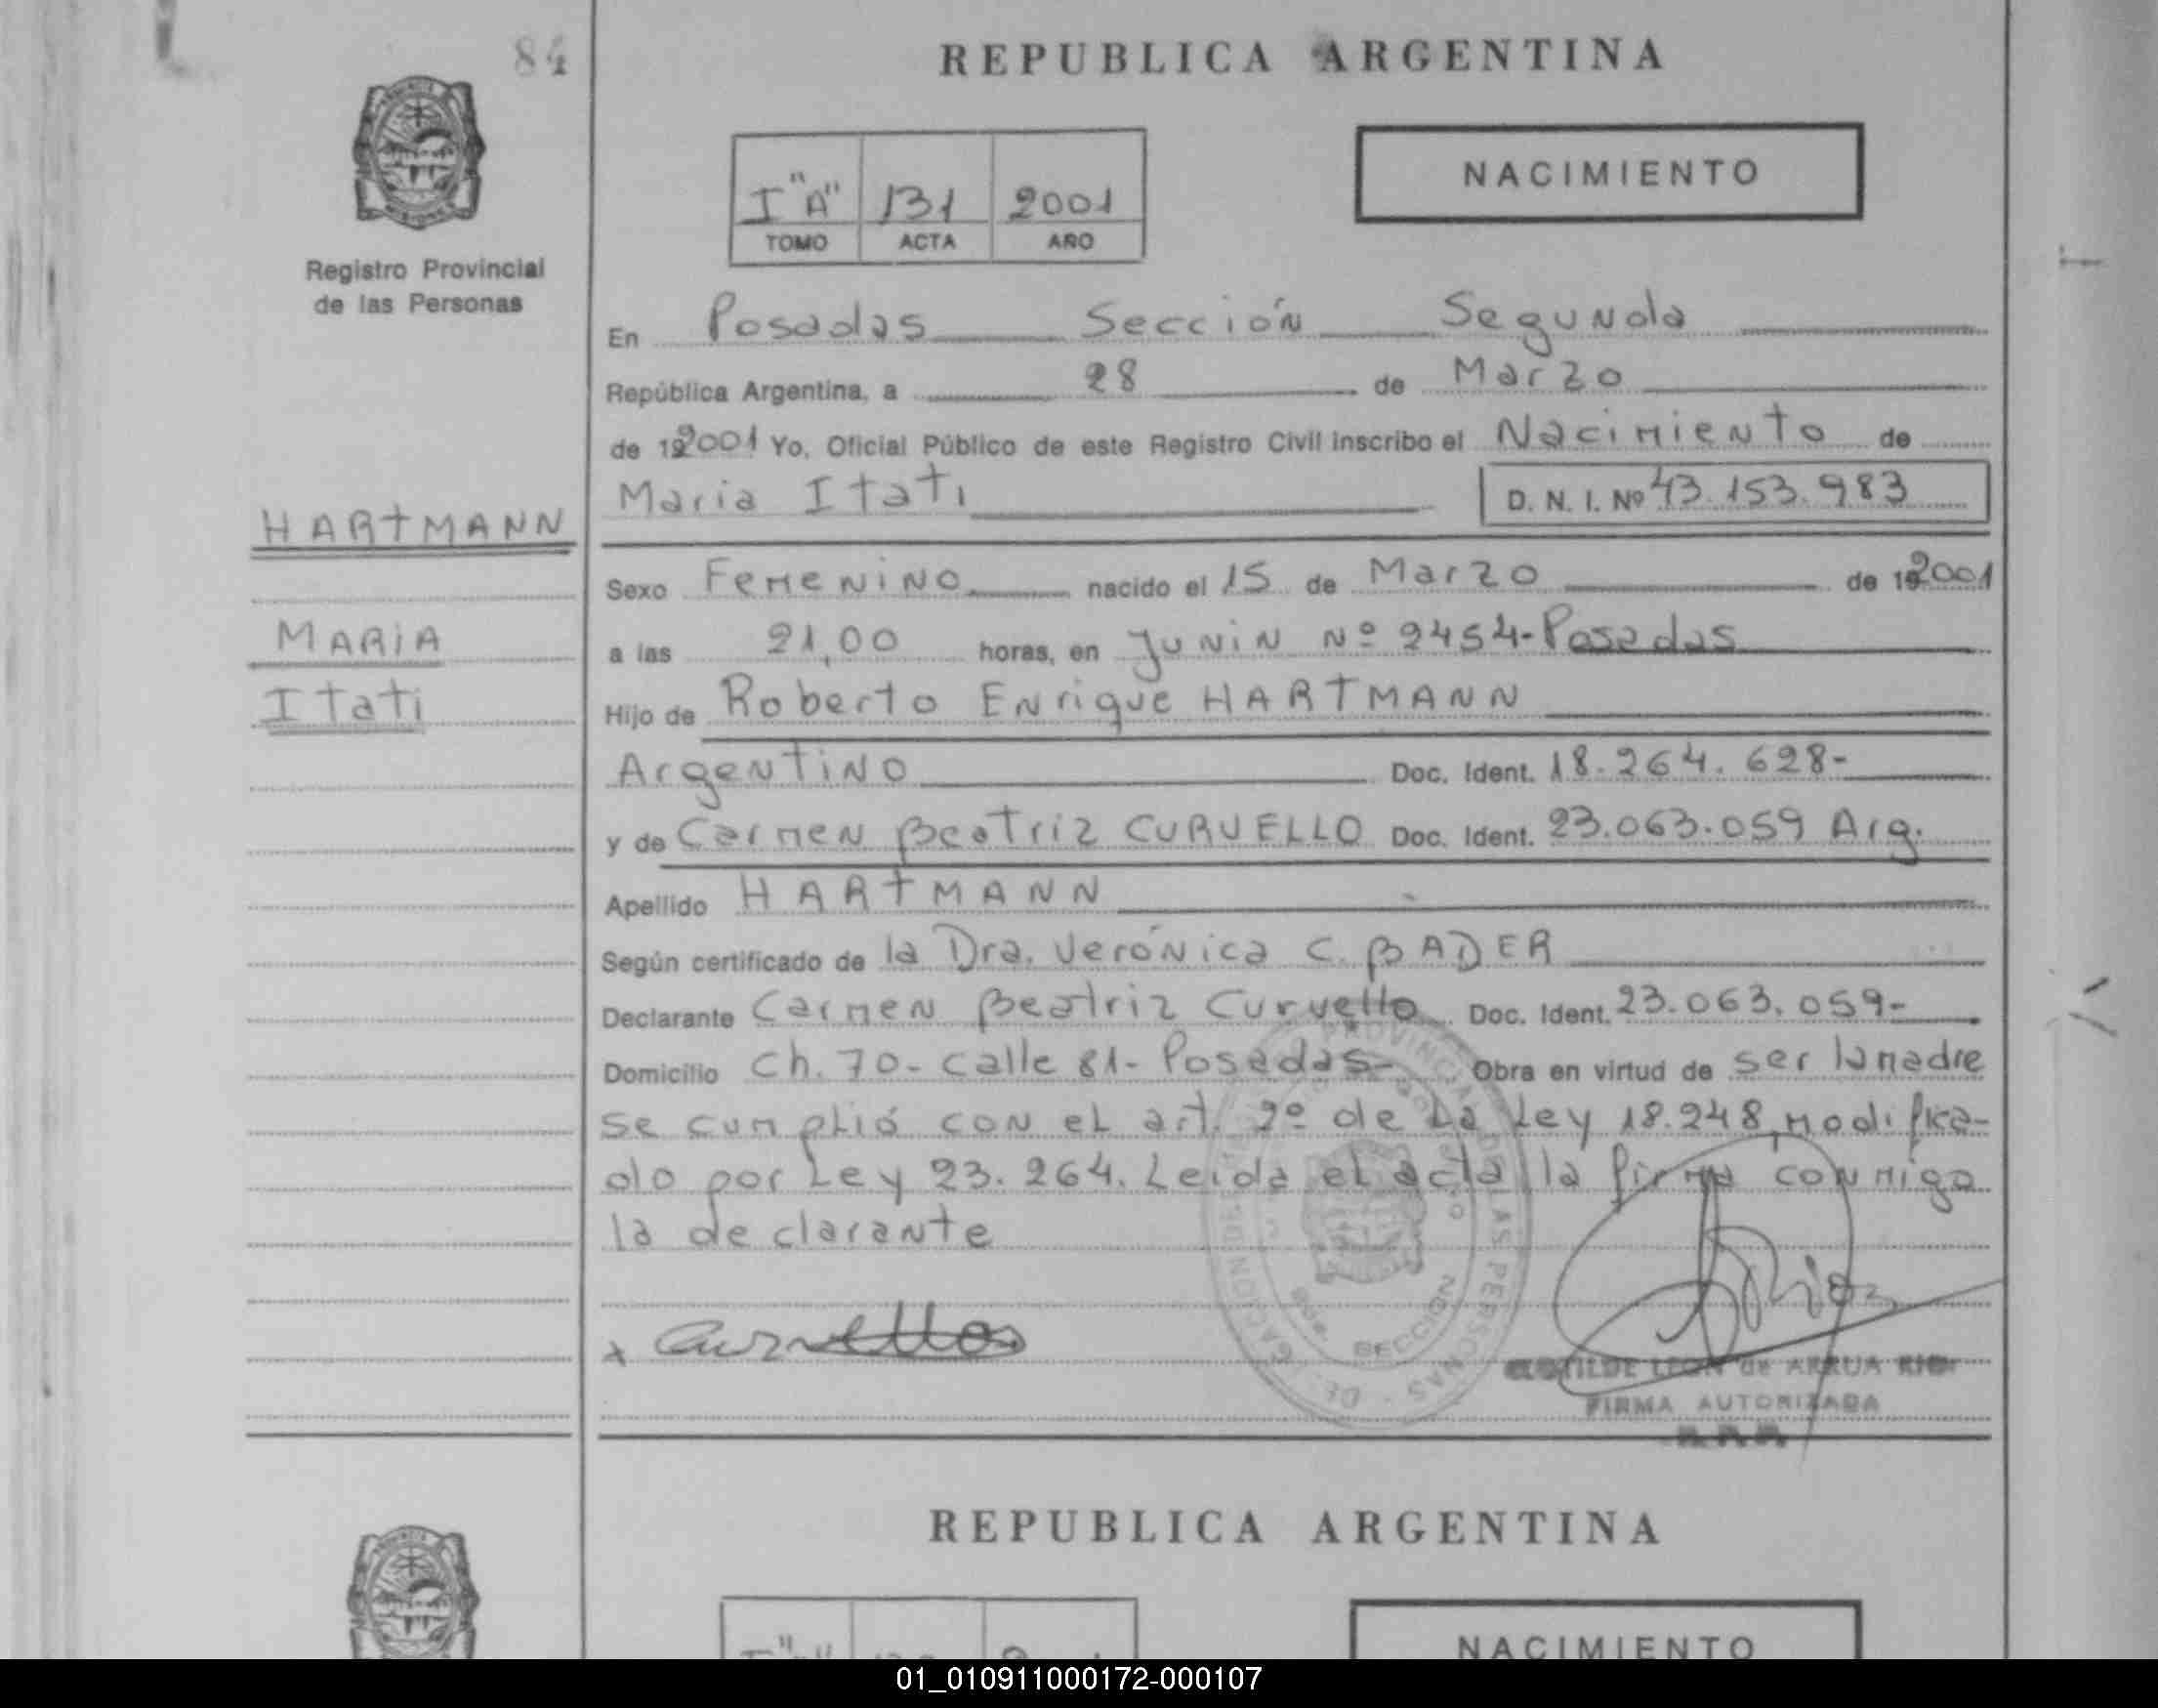 84
REPUBLICA ARGENTINA
NACIMIENTO
I "A" 131 2001
TOMO ACTA AÑO
Registro Provincial
de las Personas
En Posadas Sección Segunda
República Argentina, a 28 de Marzo
de 192001 Yo, Oficial Público de este Registro Civil inscribo el Nacimiento de
Maria Itati D. N. I. Nº 43.153.983
HARTMANN
MARIA
Itati
Sexo Femenino nacido el 15 de Marzo de 192001
a las 21,00 horas, en Junin Nº 2454-Posadas
Hijo de Roberto Enrique HARTMANN
Argentino Doc. Ident. 18.264.628-
y de Carmen Beatriz CURVELLO Doc. Ident. 23.063.059 Arg.
Apellido HARTMANN
Según certificado de la Dra. Verónica C. BADER
Declarante Carmen Beatriz Curvello Doc. Ident. 23.063.059-
Domicilio Ch. 70- calle 81- Posadas- Obra en virtud de ser la madre
se cumplió con el art. 2º de la Ley 18.248, modifica-
do por Ley 23.264. Leida el acta la firma conmigo
la declarante
x Curvello
PROVINCIAL DE LAS PERSONAS
SECCION
LEON de ARRUA
FIRMA AUTORIZADA
REPUBLICA ARGENTINA
NACIMIENTO
01_010911000172-000107